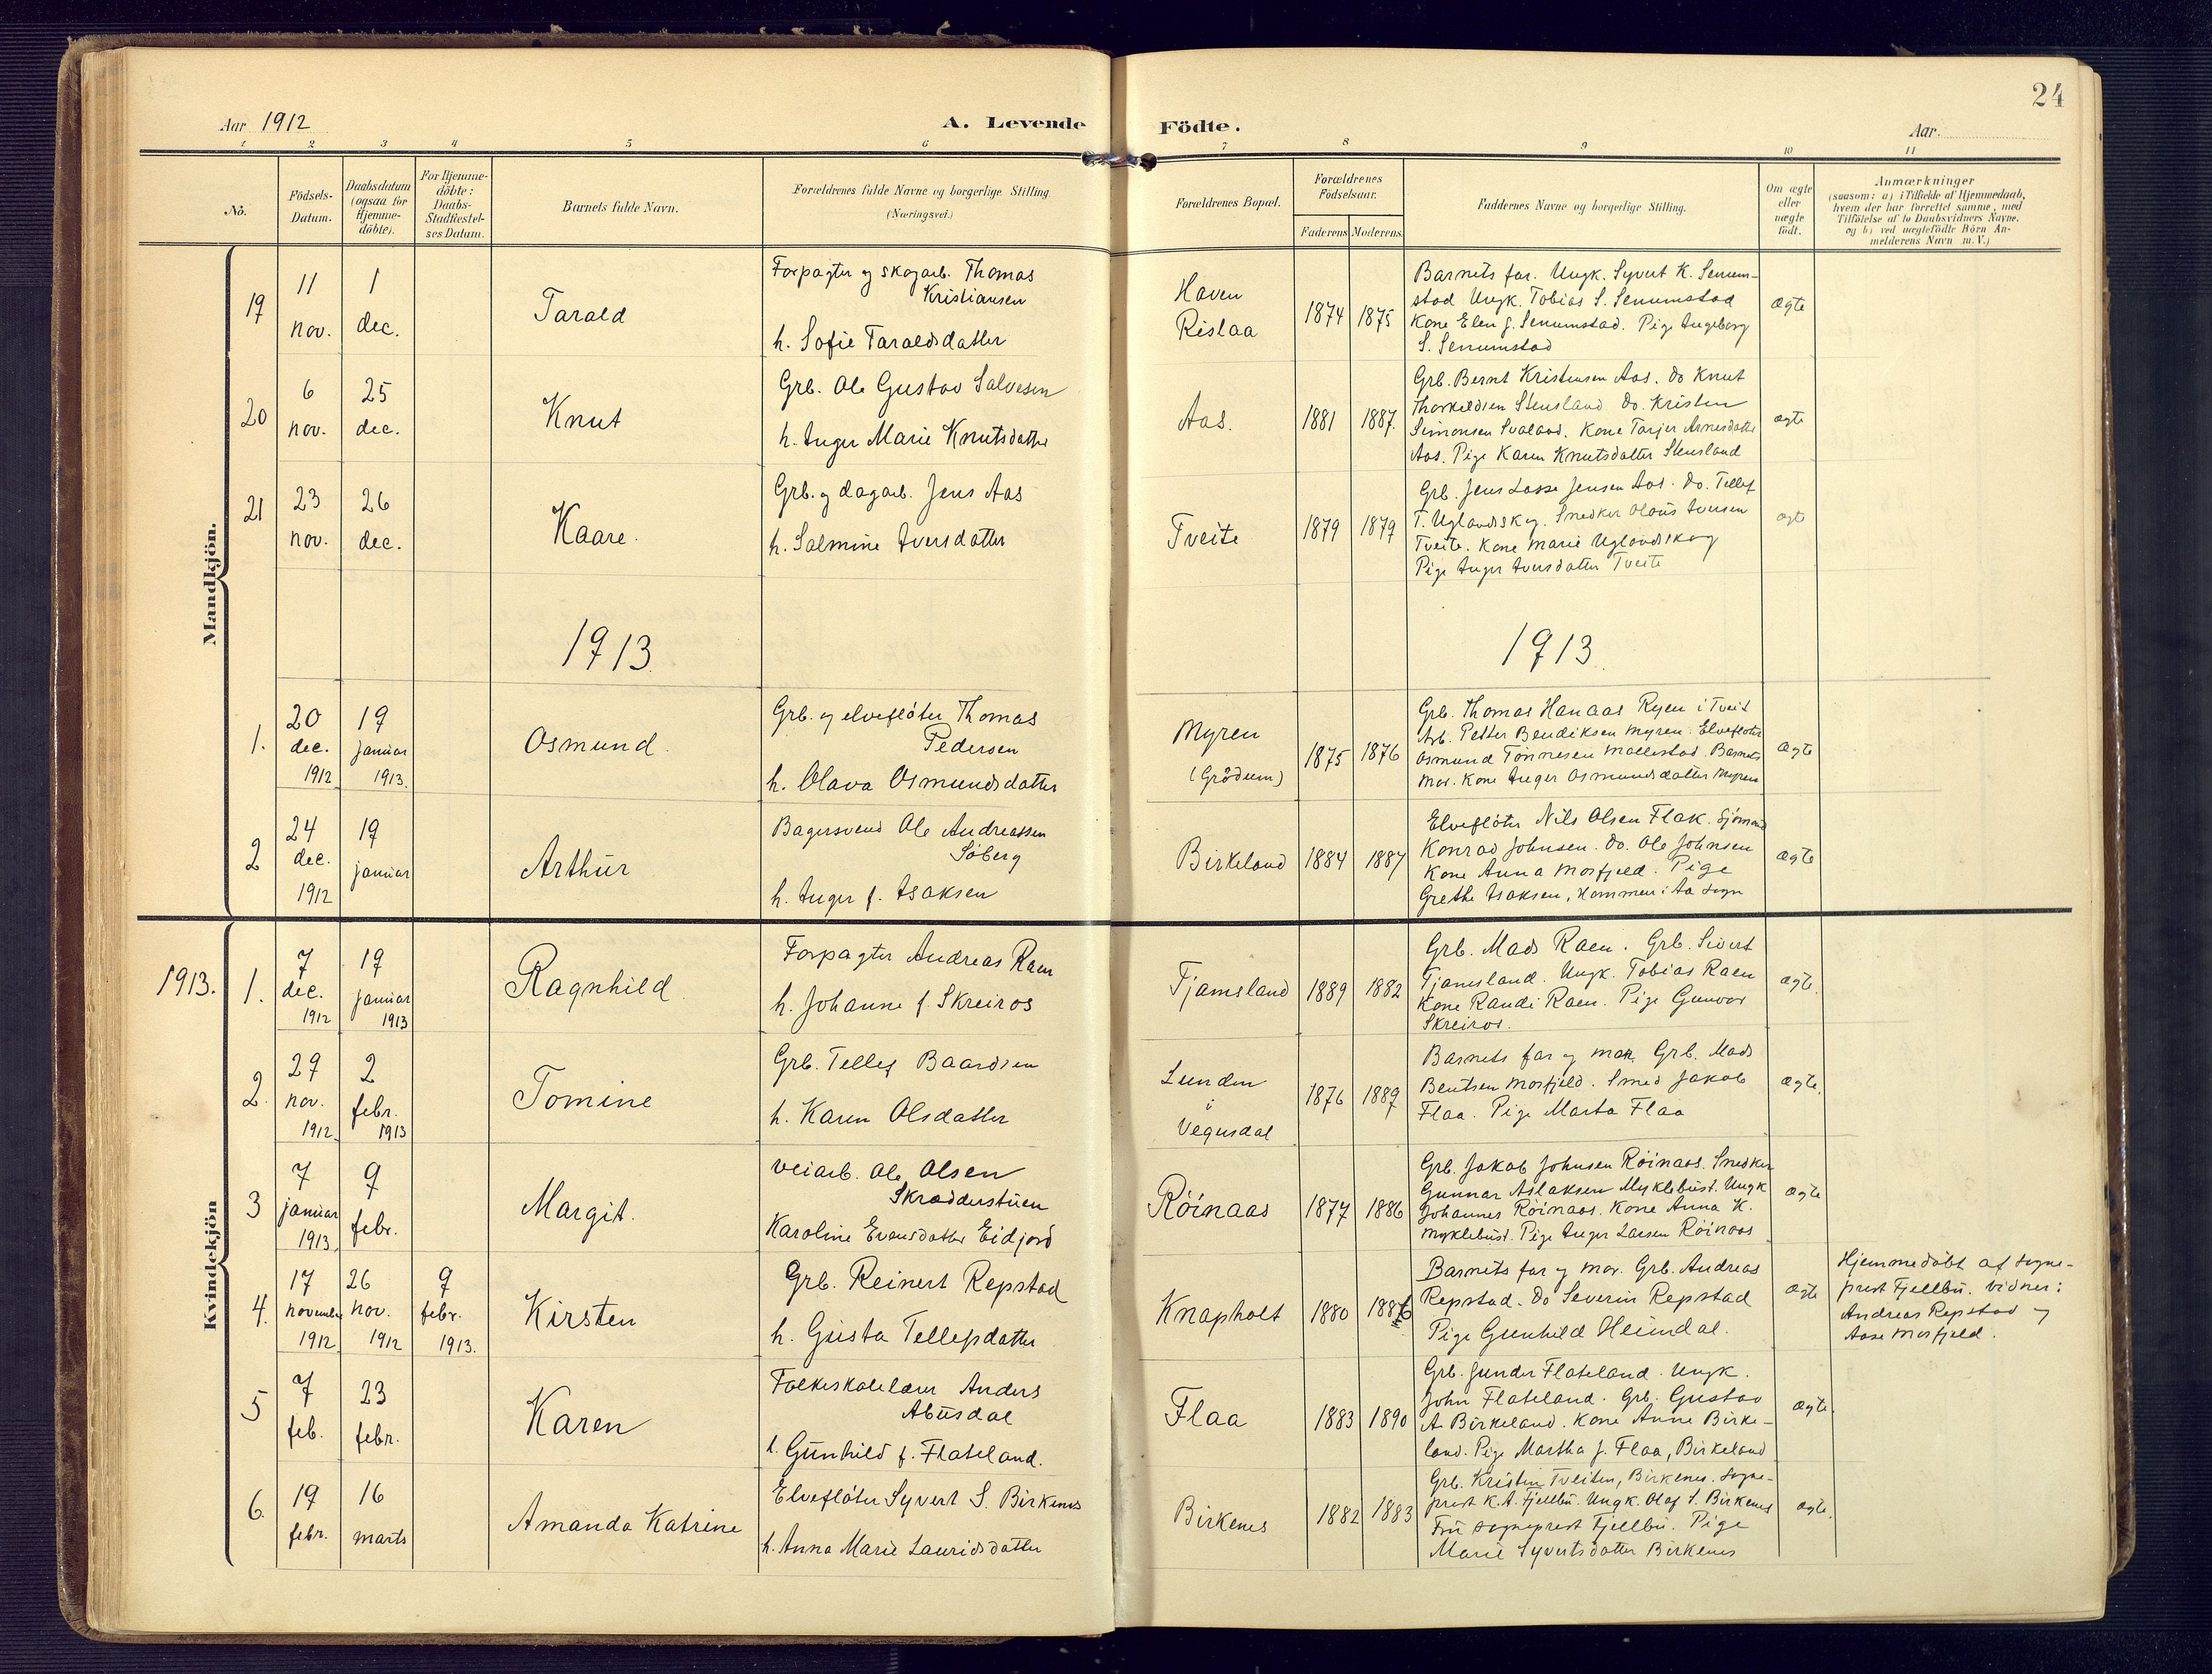 24
Aar 1912
A. Levende Födte.
Aar.
1 2 3 4 5 6 7 8 9 10 11
No.
Födsels-
Datum.
Daabsdatum
(ogsaa for
Hjemme-
döbte).
For Hjemme-
döbte:
Daabs-
Stadfæstel-
ses Datum.
Barnets fulde Navn.
Forældrenes fulde Navne og borgerlige Stilling
(Næringsvei.)
Forældrenes Bopæl.
Forældrenes
Födselsaar.
Faderens Moderens.
Faddernes Navne og borgerlige Stilling.
Om ægte
eller
uægte
födt.
Anmærkninger
(saasom: a) i Tilfælde af Hjemmedaab,
hvem der har forrettet samme, med
Tilföielse af to Daabsvidners Navne.
og b) ved uægtefödte Börn An-
melderens Navn m. V.)
Mandkjön.
19
11
nov.
1
dec.
Tarald
Forpagter og skogarb. Thomas
Kristiansen
h. Sofie Taraldsdatter
Haven
Rislaa
1874 1875
Barnets far. Ungk. Syvert K. Senum-
stad Ungk. Tobias S. Senumstad
Kone Elen J. Senumstad. Pige Ingeborg
S. Senumstad
ægte
20
6
nov.
25
dec.
Knut
Grb. Ole Gustav Salvesen
h. Inger Marie Knutsdatter
Aas.
1881 1887.
Grb. Bernt Kristensen Aas. Do Knut
Thorkildsen Stensland Do. Kristen
Simonsen Svaland. Kone Tarjer Arnesdatter
Aas. Pige Karen Knutsdatter Stensland
ægte
21
23
nov.
26
dec.
Kaare.
Grb. og dagarb. Jens Aas
h. Salmine Iversdatter
Tveite
1879 1879
Grb. Jens Lasse Jensen Aas. Do. Tellef
T. Uglandskog. Snedker Olaus Iversen
Tveite. Kone Marie Uglandskog
Pige Inger Iversdatter Tveite
ægte
1913
1913
1.
20
dec.
1912
19
januar
1913.
Osmund
Grb. og elvefløter Thomas
Pedersen
h. Olava Osmundsdatter
Myren
(Grødum)
1875 1876
Grb. Thomas Hanaas Ryen i Tveit
Arb. Petter Bendiksen Myren. Elvefløter
Osmund Tønnesen Mollestad. Barnets
mor. Kone Inger Osmundsdatter Myren
ægte
2
24
dec.
1912
19
januar
Arthur
Bagersvend Ole Andreassen
Søberg
h. Inger f. Isaksen
Birkeland
1884 1887
Elvefløter Nils Olsen Flak. Sjømand
Konrad Johnsen. Do. Ole Johnsen
Kone Anna Mosfjeld. Pige
Grethe Isaksen, Hommen i Aa sogn
ægte
Kvindekjön
1913.
1.
7
dec.
1912
19
januar
1913
Ragnhild
Forpagter Andreas Raen
h. Johanne f. Skreiros
Tjamsland
1889 1882
Grb. Mads Raen. Grb. Sivert
Tjamsland. Ungk. Tobias Raen
Kone Randi Raen. Pige Gunvor
Skreiros.
ægte.
2.
29
nov.
1912.
2
febr.
1913
Tomine
Grb. Tellef Baardsen
h. Karen Olsdatter
Lunden
i
Vegusdal
1876 1889
Barnets far og mor. Grb. Mads
Bentsen Mosfjeld. Smed Jakob
Flaa. Pige Marta Flaa
ægte.
3
7
januar
1913.
9
febr.
Margit.
Veiarb. Ole Olsen
Skrædderstuen
Karoline Evensdatter Eidjord
Röinaas
1877 1886
Grb. Jakob Johnsen Röinaas. Snedker
Gunnar Aslaksen Myklebust. Ungk
Johannes Röinaas. Kone Anna K.
Myklebust. Pige Inger Larsen Röinaas
ægte
4.
17
november
1912
26
nov.
1912
9
febr.
1913.
Kirsten
Grb. Reinert Repstad
h. Gusta Tellefsdatter
Knapholt
1880 1886
Barnets far og mor. Grb. Andreas
Repstad. Do Severin Repstad
Pige Gunhild Heimdal.
ægte
Hjemmedøbt af sogne-
prest Fjellbu. Vidner:
Andreas Repstad og
Aase Mosfjeld.
5
7
feb.
23
febr.
Karen
Folkeskolelærer Anders
Abusdal
h. Gunhild f. Flateland.
Flaa
1883 1890
Grb. Gunder Flateland. Ungk.
John Flateland. Grb. Gustav
A. Birkeland. Kone Anne Birke-
land. Pige Martha J. Flaa, Birkeland
ægte.
6.
19
febr.
16
marts
Amanda Katrine
Elvefløter Syvert S. Birkenes
h. Anna Marie Lauridsdatter
Birkenes
1882 1883
Grb. Kristen Tveiten, Birkenes. Sogne-
prest K. A. Fjellbu. Ungk. Olaf S. Birkenes
Fru sogneprest Fjellbu. Pige
Marie Syvertsdatter Birkenes
ægte.